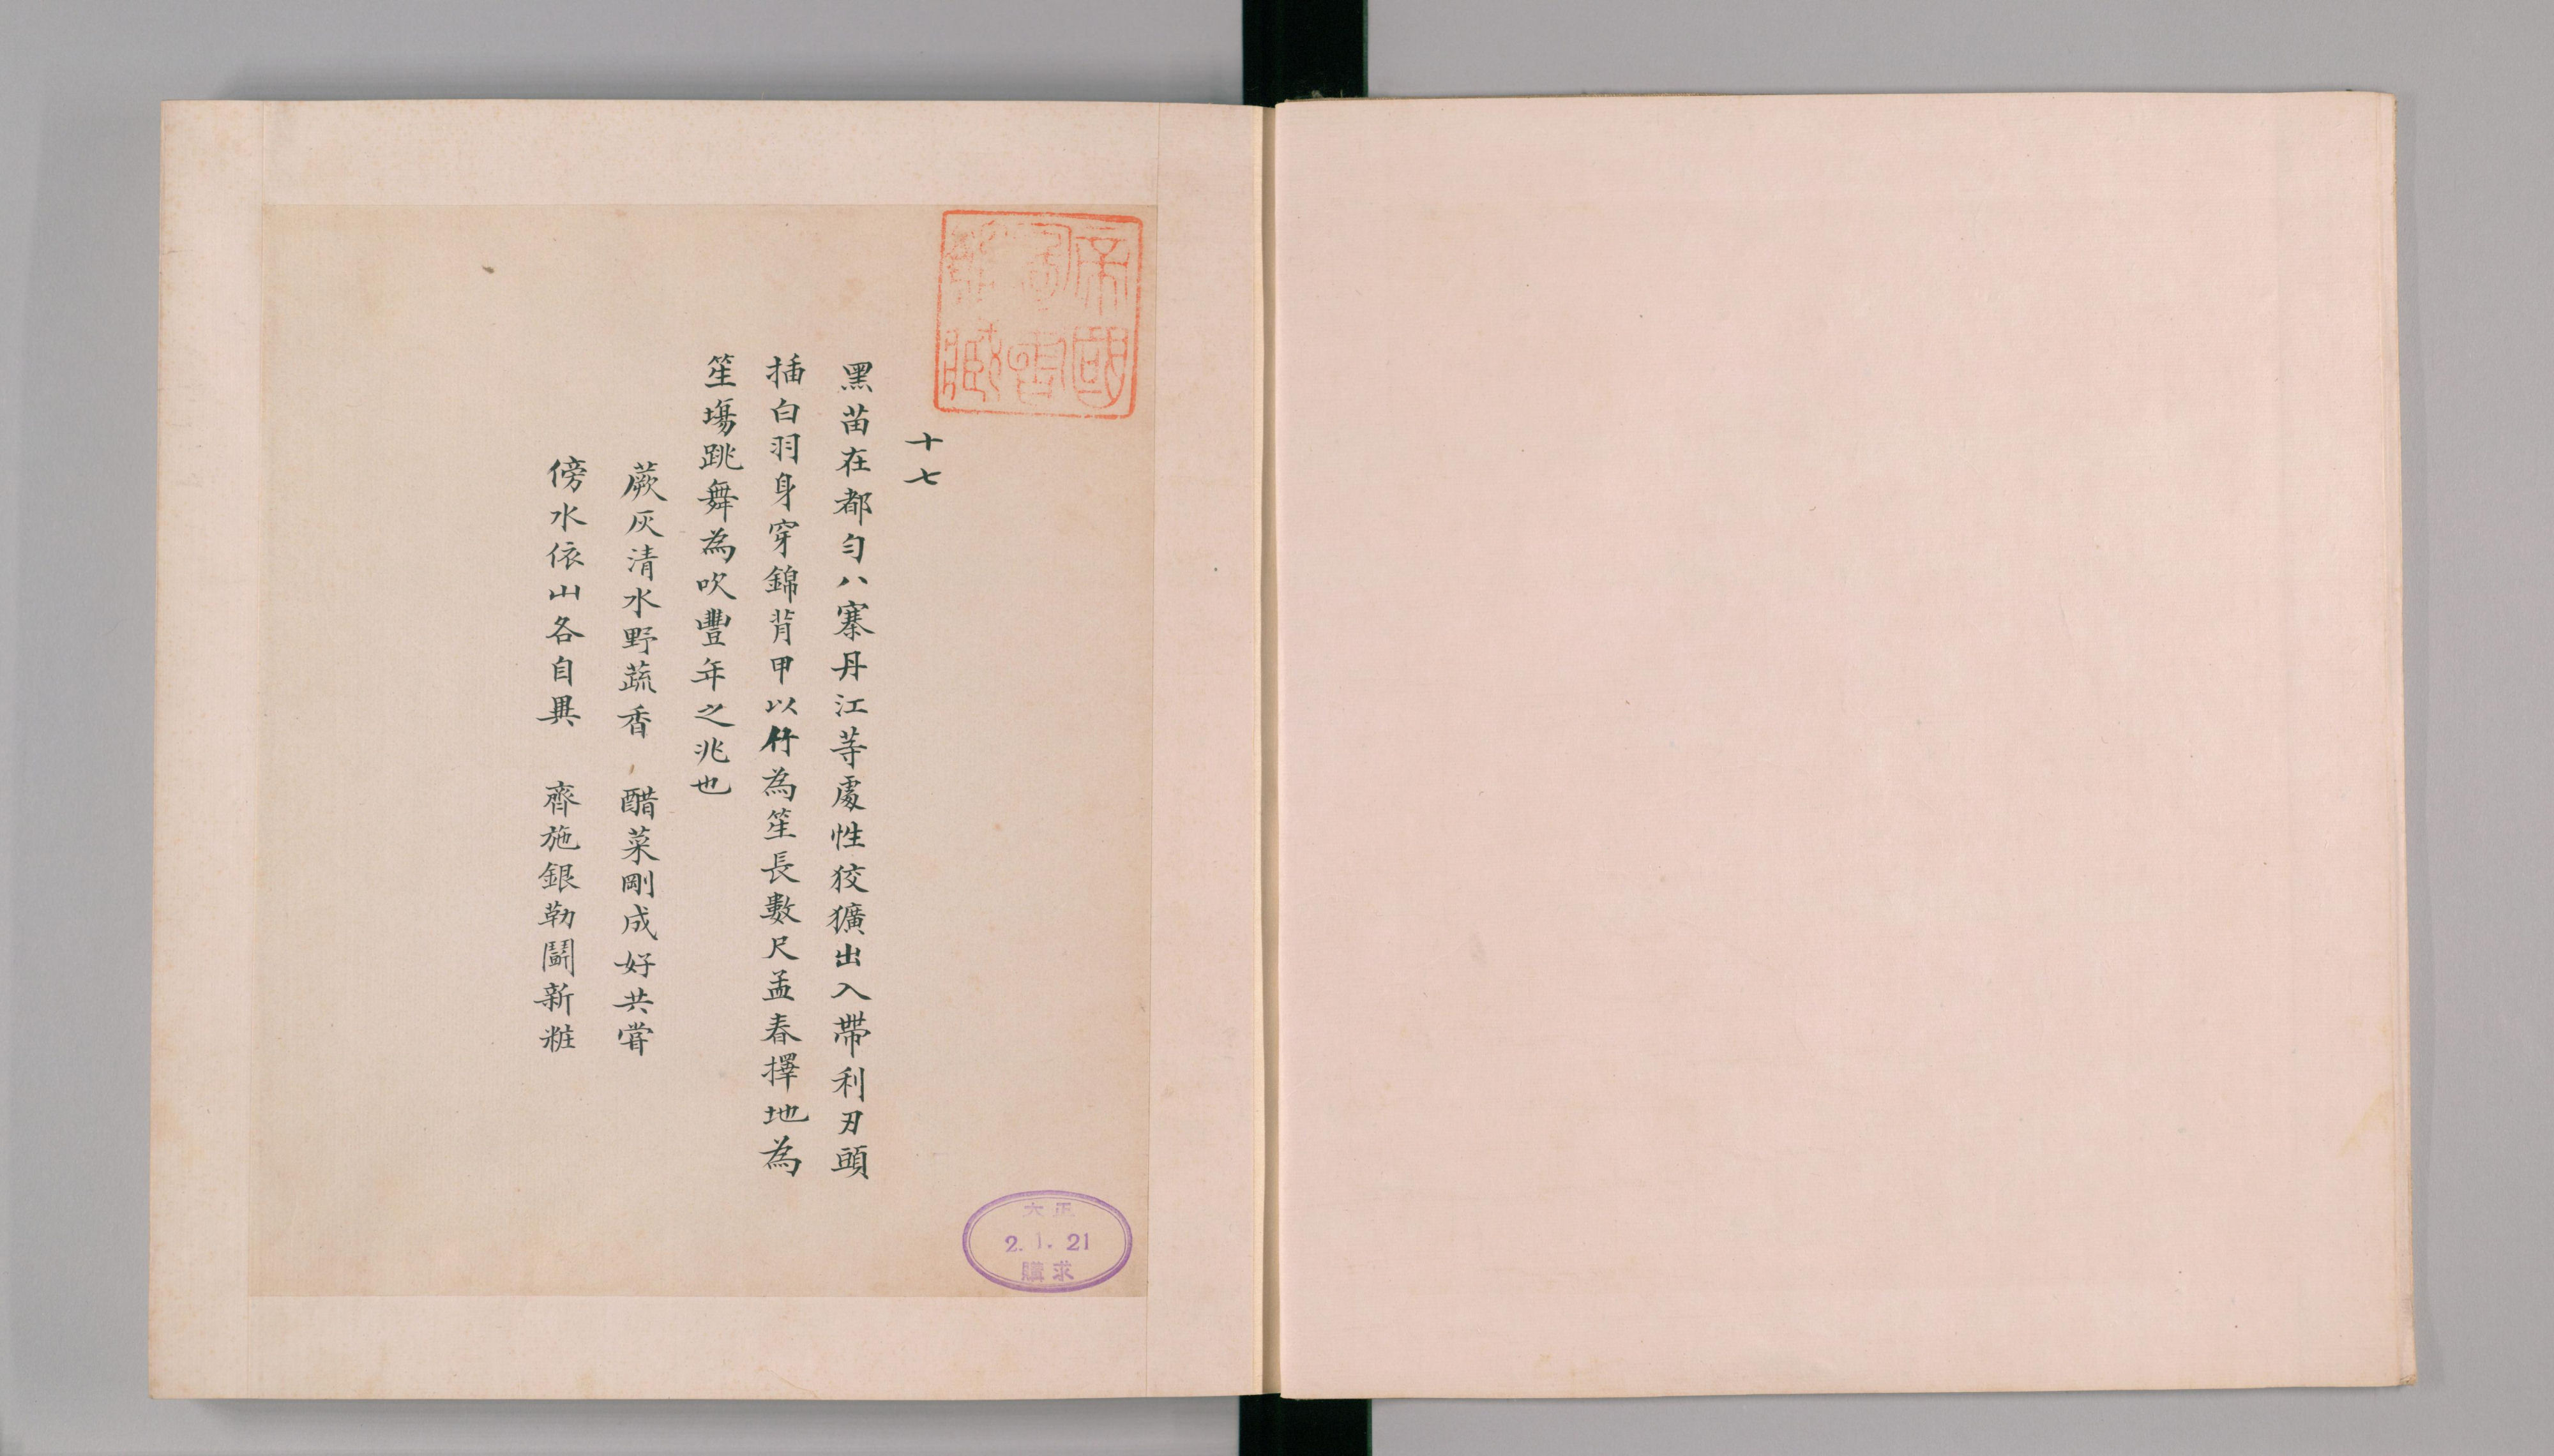 帝國
圖書
館藏
十七
黑苗在都匀八寨丹江等處性狡獷出入帶利刃頭
插白羽身穿錦背甲以竹為笙長數尺孟春擇地為
笙塲跳舞為吹豐年之兆也
蕨灰清水野蔬香　醋菜剛成好共甞
傍水依山各自異　齊施銀勒鬪新粧
大正
2.1.21
購求